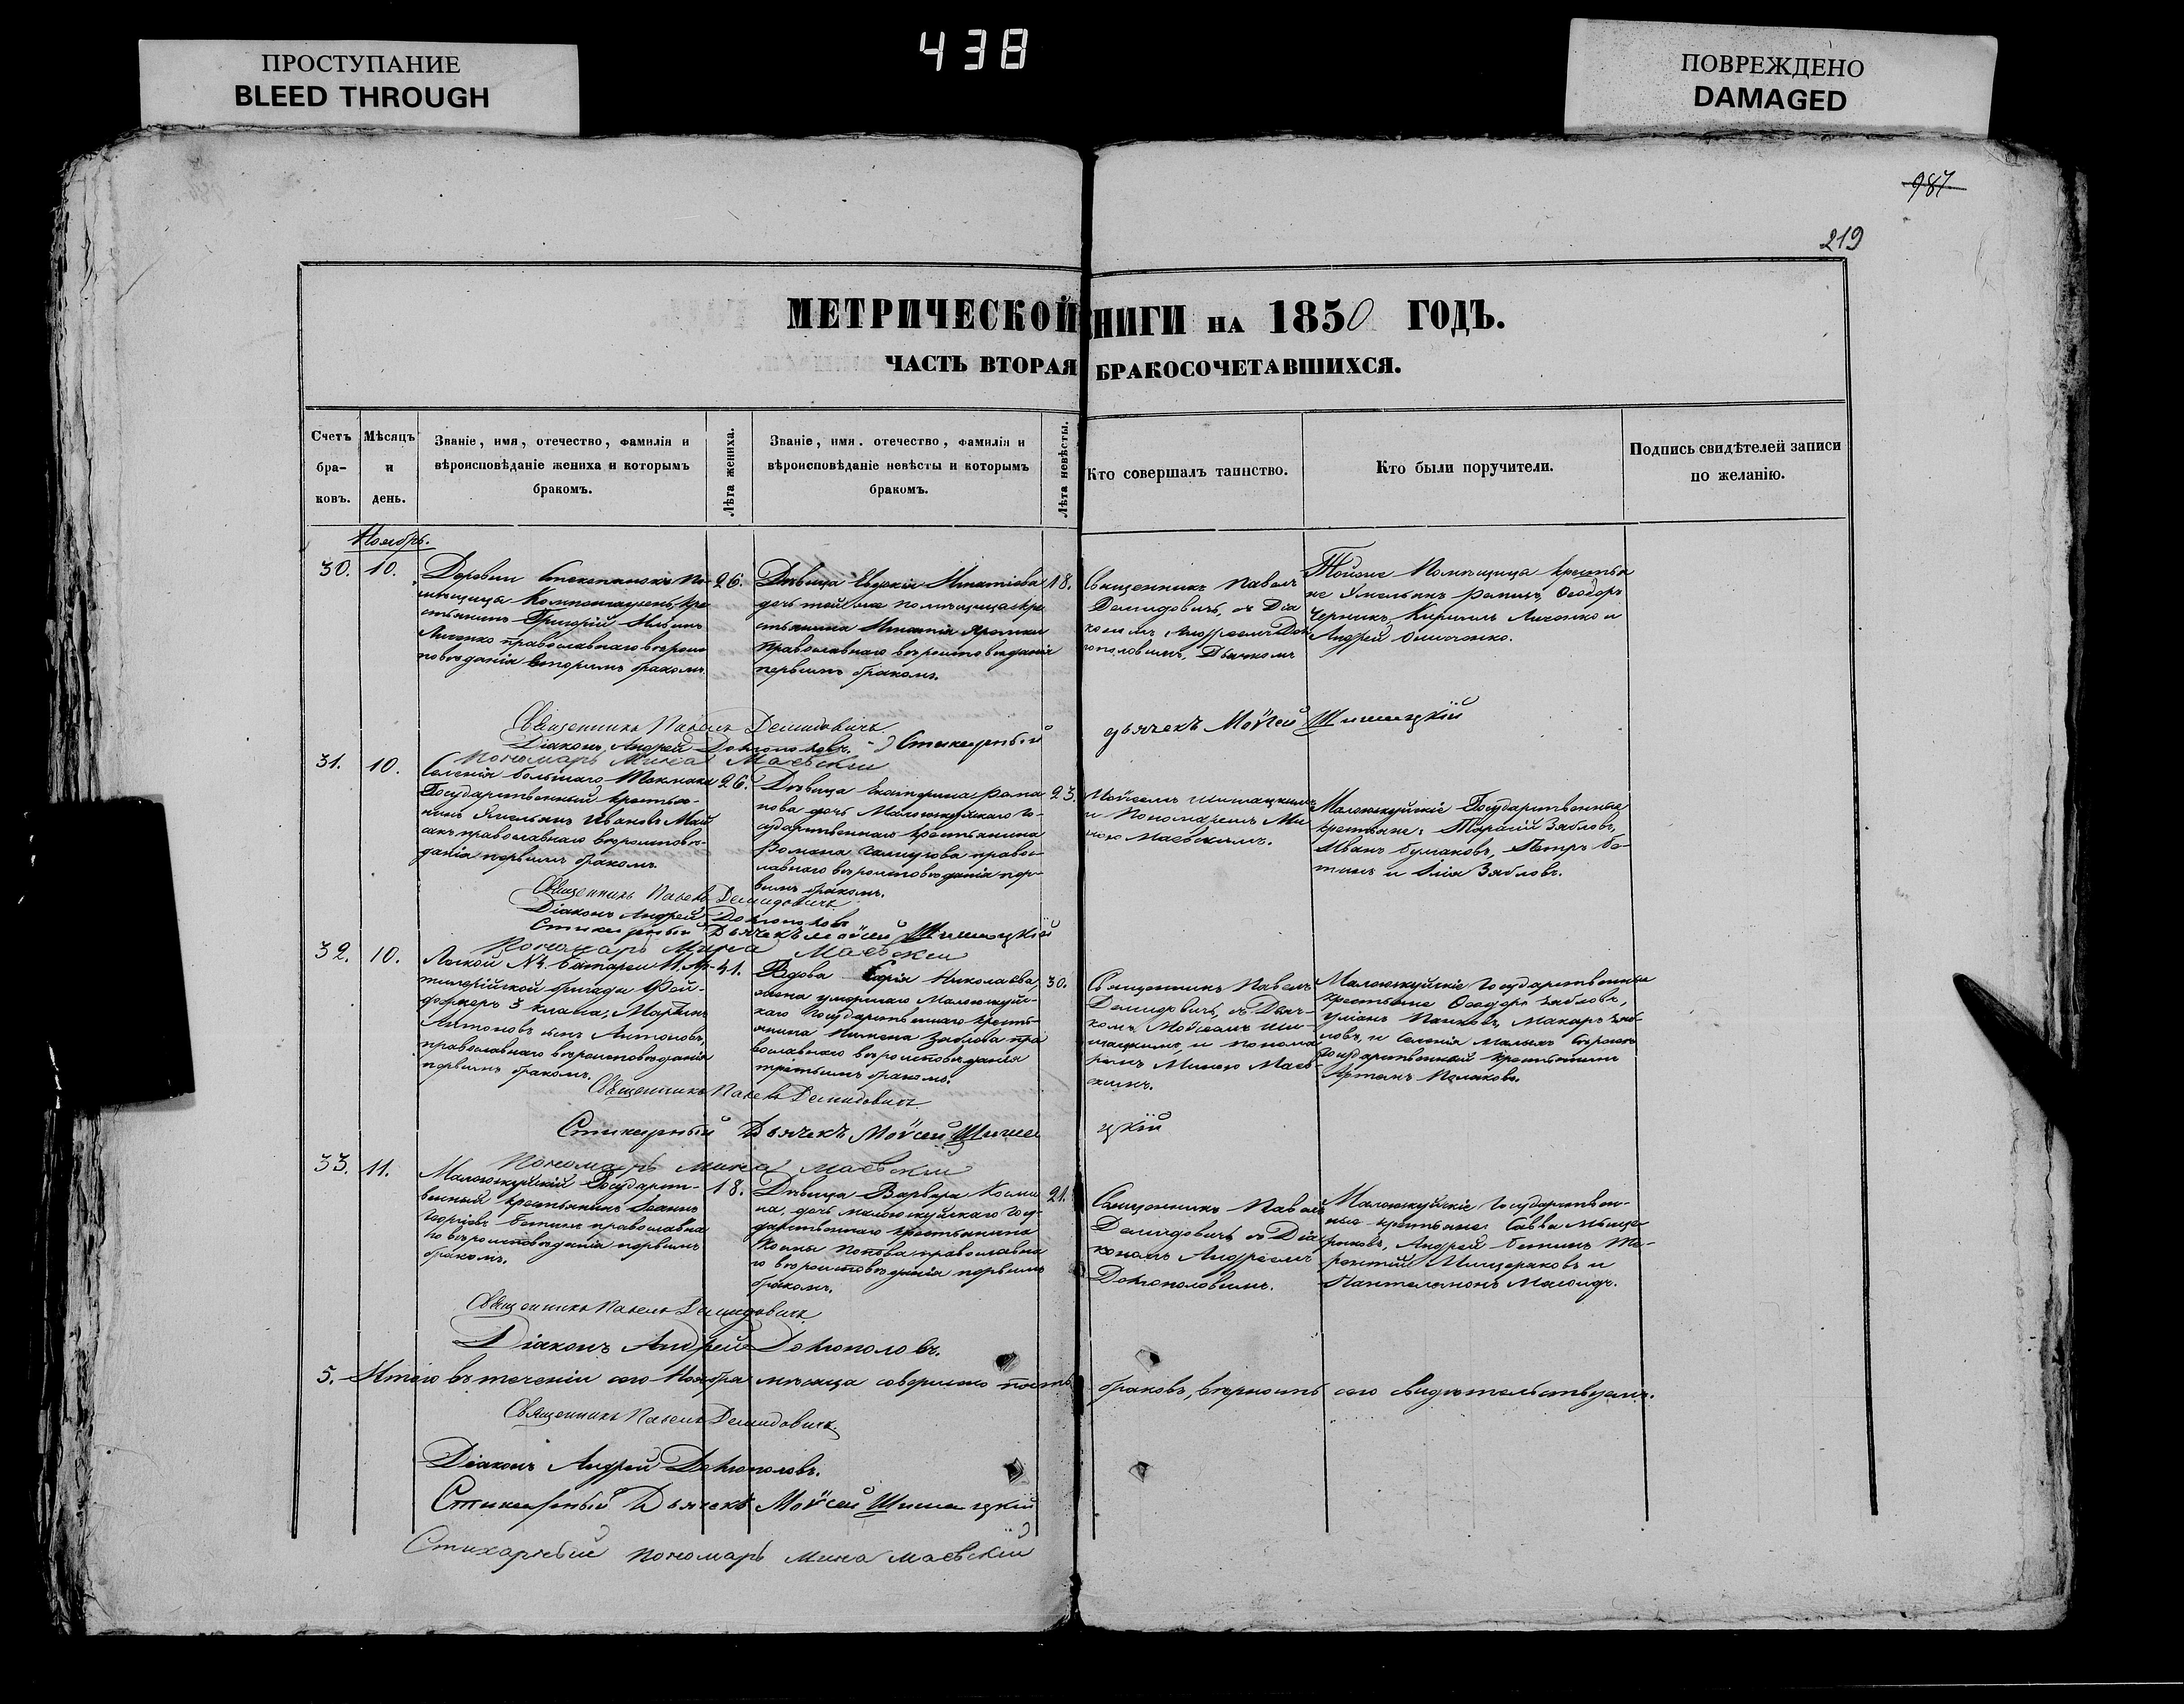 ПРОСТУПАНИЕ
BLEED THROUGH
438
ПОВРЕЖДЕНО
DAMAGED
987
219
МЕТРИЧЕСКОЙ НИГИ НА 1850 ГОДЪ.
ЧАСТЬ ВТОРАЯ БРАКОСОЧЕТАВШИХСЯ.
Счетъ бра-ковъ.
Мѣсяцъ и день.
Званіе, имя, отечество, фамилія и
вѣроисповѣданіе жениха и которымъ
бракомъ.
Лѣта жениха.
Званіе, имя. отечество, фамилія и
вѣроисповѣданіе невѣсты и которымъ
бракомъ.
Лѣта невѣсты.
Кто совершалъ таинство.
Кто были поручители.
Подпись свидѣтелей записи
по желанію.
Ноябрь.
30. 10.
Деревни По-
мѣщицы кре-
стьянинъ Григорій
православнаго вѣроис-
повѣданія вторымъ бракомъ
26.
Дѣвица Евдокія Игнатіева
дочь той же помѣщицы кре
стьянина Игнатія
православнаго вѣроисповѣданія
первымъ бракомъ.
18.
Священникъ Павелъ
Демидовичъ, съ Діа
кономъ Андреемъ Дов
гополовымъ, Дьячкомъ
Тойже Помѣщицы крестья
не Емельянъ Ѳеодоръ
Черникъ, Кириллъ и
Андрей
Священникъ Павелъ Демидовичъ
Діаконъ Андрей Довгополовъ. Стихарный
дьячекъ Мойсей Шишацкій
Пономарь Мина Маевскій
31. 10.
Селенія большаго Токмака
Государственный крестья-
нинъ Емельянъ Ивановъ
православнаго вѣроисповѣ-
данія первымъ бракомъ.
26.
Дѣвица Екатерина Рома
нова дочь Го-
сударственнаго крестьянина
Романа право-
славнаго вѣроисповѣданія пер-
вымъ бракомъ.
23.
Мойсеемъ Шишацкимъ
и Пономаремъ Ми
ною Маевскимъ.
Государственные
крестьяне: Тарасій Зябловъ,
Иванъ Булаковъ, Петръ Бе-
тинъ и Илія Зябловъ.
Священникъ Павелъ Демидовичъ
Діаконъ Андрей Довгополовъ
Стихарный Дьячекъ Мойсей Шишацкій
Пономарь Мина Маевскій
32. 10.
Легкой № Батареи 11. Ар-
тиллерійской бригады Фей-
ерверкеръ 3 класа, Мартинъ
Антоновъ сынъ Антоновъ,
православнаго вѣроисповѣданія
первымъ бракомъ.
41.
Вдова Николаева
жена умершаго
каго Государственнаго кресть-
янина Зяблова пра
вославнаго вѣроисповѣданія
третьимъ бракомъ.
30.
Священникъ Павелъ
Демидовичъ, съ Дьяч-
комъ Мойсеемъ Ши-
шацкимъ, и понома
ремъ Миною Маев-
скимъ.
Государственные
крестьяне Ѳеодоръ Зябловъ,
Макаръ Зяб-
ловъ, и Селенія
Государственный крестьянинъ
Артемъ Поляковъ.
Священникъ Павелъ Демидовичъ
Стихарный Дьячекъ Мойсей Шиша
цкій
Пономарь Мина Маевскій
33. 11.
Государст-
венный крестьянинъ Іоаннъ
Георгіевъ Бетинъ православна
го вѣроисповѣданія первымъ
бракомъ.
18.
Дѣвица Варвара Косми
на, дочь Госу-
дарственнаго крестьянина
Космы Попова православна
го вѣроисповѣданія первымъ
бракомъ.
21.
Священникъ Павелъ
Демидовичъ съ Діа
кономъ Андреемъ
Довгополовымъ.
Государствен-
ные крестьяне: Савва Мище
ряковъ, Андрей Бетинъ Те-
рентій Мищеряковъ и
Пантелеймонъ
Священникъ Павелъ Демидовичъ
Діаконъ Андрей Довгополовъ.
5. Итого въ теченіи сего Ноября мѣсяца совершено пять браковъ, вѣрность сего свидѣтельствуемъ.
Священникъ Павелъ Демидовичъ
Діаконъ Андрей Довгополовъ.
Стихарный Дьячекъ Мойсей Шишацкій
Стихарный пономарь Мина Маевскій